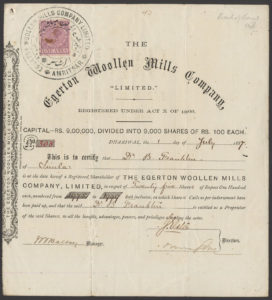 EGERTON WOOLLEN MILLS COMPANY LIMITED
AMRITSAR
THE
Egerton Woollen Mills Company,
"LIMITED."
REGISTERED UNDER ACT X OF 1866.
CAPITAL—RS. 9,00,000, DIVIDED INTO 9,000 SHARES OF RS. 100 EACH.
DHARIWAL, the 1 day of July 18
This is to certify that Dr B Franklin
of Simla
is at the date hereof a Registered Shareholder of THE EGERTON WOOLLEN MILLS
COMPANY, LIMITED, in respect of Twenty five Shares of Rupees One Hundred
each, numbered from to both inclusive, on which Shares all Calls as per indorsement have
been paid up, and that the said Dr B Franklin is entitled as a Proprietor
of the said Shares, to all the advantages, powers, and privileges
Manager.
Directors.